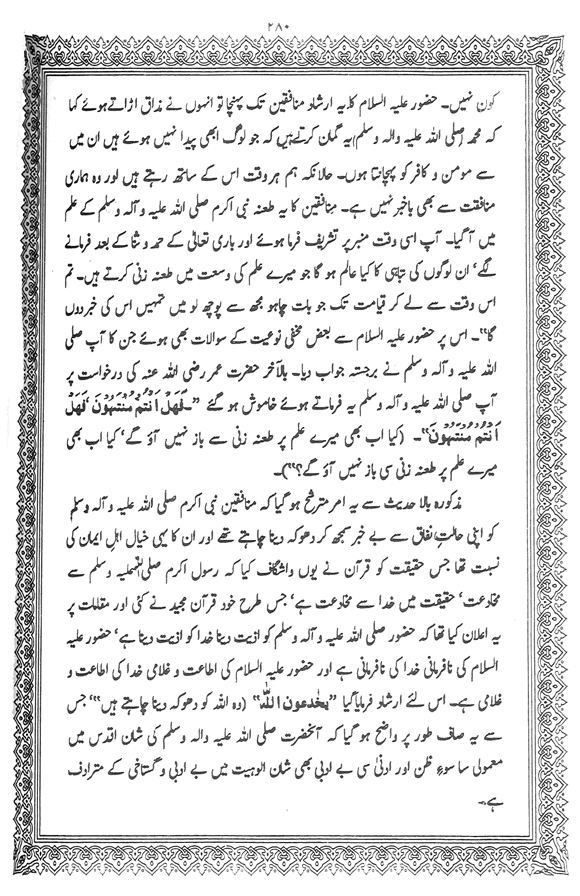 ۲۸۰
کون نہیں۔ حضور علیہ السلام کا یہ ارشاد منافقین تک پہنچا تو انہوں نے مذاق اڑاتے ہوئے کہا
کہ محمد (صلی اللہ علیہ والہ وسلم) یہ گمان کرتے ہیں کہ جو لوگ ابھی پیدا نہیں ہوئے ہیں ان میں
سے مومن و کافر کو پہچانتا ہوں۔ حالانکہ ہم ہر وقت اس کے ساتھ رہتے ہیں اور وہ ہماری
منافقت سے بھی باخبر نہیں ہے۔ منافقین کا یہ طعنہ نبی اکرم صلی اللہ علیہ و آلہ وسلم کے علم
میں آگیا۔ آپ اسی وقت منبر پر تشریف فرما ہوئے اور باری تعالیٰ کے حمد و ثنا کے بعد فرمانے
لگے‘ ان لوگوں کی تباہی کا کیا عالم ہو گا جو میرے علم کی وسعت میں طعنہ زنی کرتے ہیں۔ تم
اس وقت سے لے کر قیامت تک جو بات چاہو مجھ سے پوچھ لو میں تمہیں اس کی خبر دوں
گا“۔ اس پر حضور علیہ السلام سے بعض مخفی نوعیت کے سوالات بھی ہوئے جن کا آپ صلی
اللہ علیہ و آلہ وسلم نے برجستہ جواب دیا۔ بالآخر حضرت عمر رضی اللہ عنہ کی درخواست پر
آپ صلی اللہ علیہ و آلہ وسلم یہ فرماتے ہوئے خاموش ہو گئے ”۔فَهَلْ اَنْتُمْ مُنْتَهُوْنَ‘ فَهَلْ
اَنْتُمْ مُنْتَهُوْنَ“۔ (کیا اب بھی میرے علم پر طعنہ زنی سے باز نہیں آؤ گے‘ کیا اب بھی
میرے علم پر طعنہ زنی سی باز نہیں آؤ گے؟“)۔
مذکورہ بالا حدیث سے یہ امر مترشح ہو گیا کہ منافقین نبی اکرم صلی اللہ علیہ و آلہ وسلم
کو اپنی حالتِ نفاق سے بے خبر سمجھ کر دھوکہ دینا چاہتے تھے اور ان کا یہی خیال اہلِ ایمان کی
نسبت تھا جس حقیقت کو قرآن نے یوں واشگاف کیا کہ رسول اکرم صلی اللہ علیہ وسلم سے
مخادعت‘ حقیقت میں خدا سے مخادعت ہے‘ جس طرح خود قرآن مجید نے کئی اور مقامات پر
یہ اعلان کیا تھا کہ حضور صلی اللہ علیہ و آلہ وسلم کو اذیت دینا خدا کو اذیت دینا ہے‘ حضور علیہ
السلام کی نافرمانی خدا کی نافرمانی ہے اور حضور علیہ السلام کی اطاعت و غلامی خدا کی اطاعت و
غلامی ہے۔ اس لئے ارشاد فرمایا گیا ”یخٰدعون اللّٰہ“ (وہ اللہ کو دھوکہ دینا چاہتے ہیں“‘ جس
سے یہ صاف طور پر واضح ہو گیا کہ آنحضرت صلی اللہ علیہ والہ وسلم کی شان اقدس میں
معمولی سا سوءِ ظن اور ادنیٰ سی بے ادبی بھی شان الوہیت میں بے ادبی و گستاخی کے مترادف
ہے۔